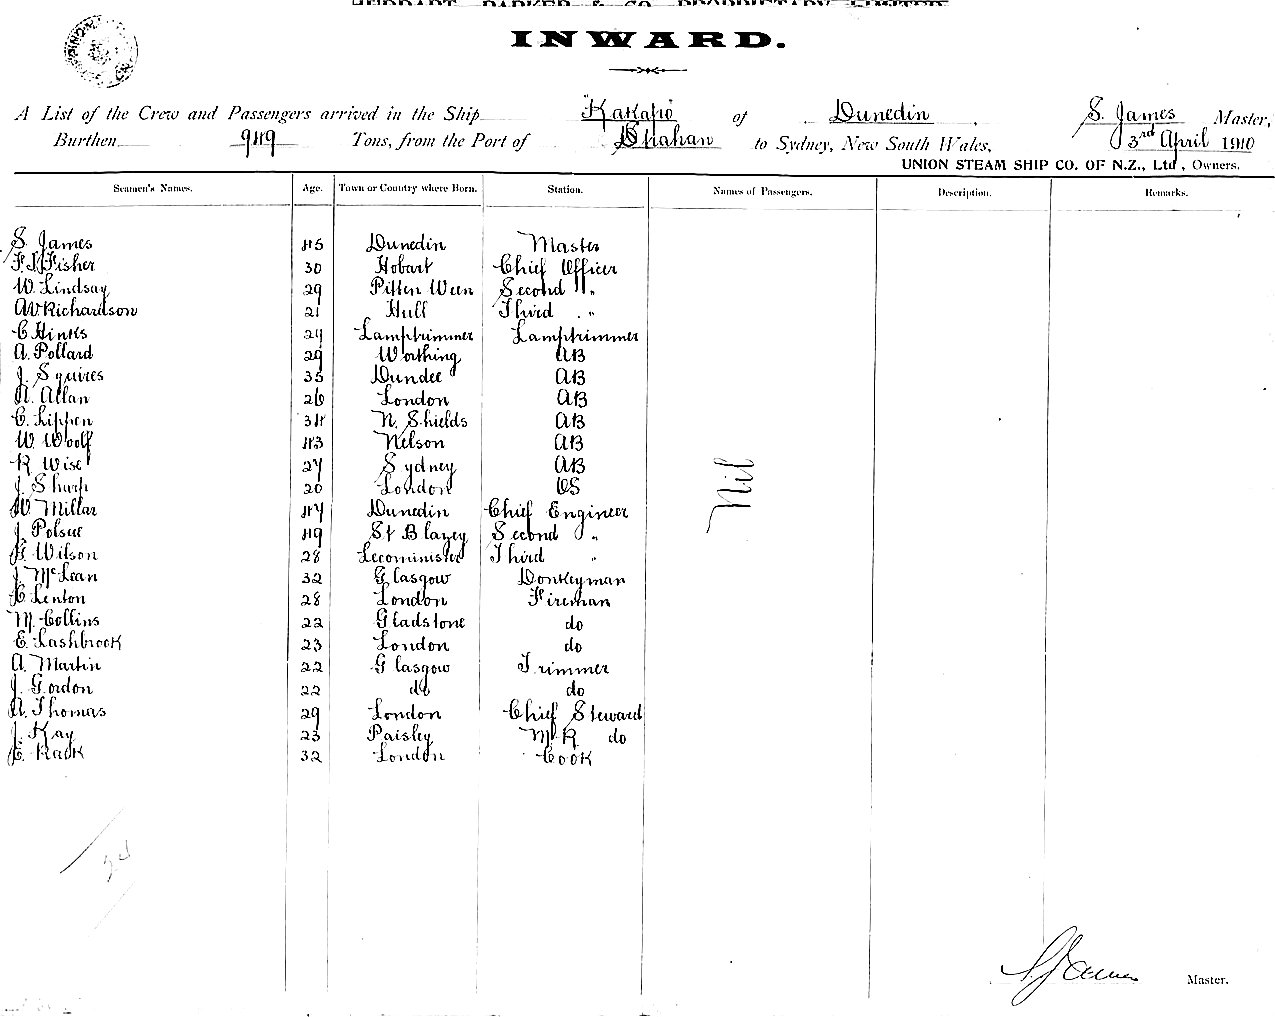 INWARD.
A List of the Crew and Passengers arrived in the Ship "Kakapo" of Dunedin, S. James Master,
Burthen 949 Tons, from the Port of Strahan to Sydney, New South Wales, 3rd April 1910
UNION STEAM SHIP CO. OF N.Z., Ltd, Owners.
Seamen's Names. Age. Town or Country where Born. Station. Names of Passengers. Description. Remarks.
S. James 45 Dunedin Master
Fisher 30 Hobart Chief Officer
W. Lindsay 29 Pitten Ween Second "
Richardson 21 Hull Third "
C Hinks 24 Lamptrimmer Lamptrimmer
A. Pollard 29 Worthing AB
J. Squires 35 Dundee AB
A. Allan 26 London AB
C. Lippen 34 N. Shields AB
W. Woolf 43 Nelson AB
R Wise 27 Sydney AB
J. Sharp 20 London OS
W. Millar 47 Dunedin Chief Engineer
J. Polsue 49 St Blazey Second "
Wilson 28 Leominister Third "
J. McLean 32 Glasgow Donkeyman
C. Lenton 28 London Fireman
M. Collins 22 Gladstone do
E. Lashbrook 23 London do
A. Martin 22 Glasgow Trimmer
J. Gordon 22 do do
A. Thomas 29 London Chief Steward
J. Kay 23 Paisley M R do
E. Rack 32 London Cook
Nil
24
S. James Master.